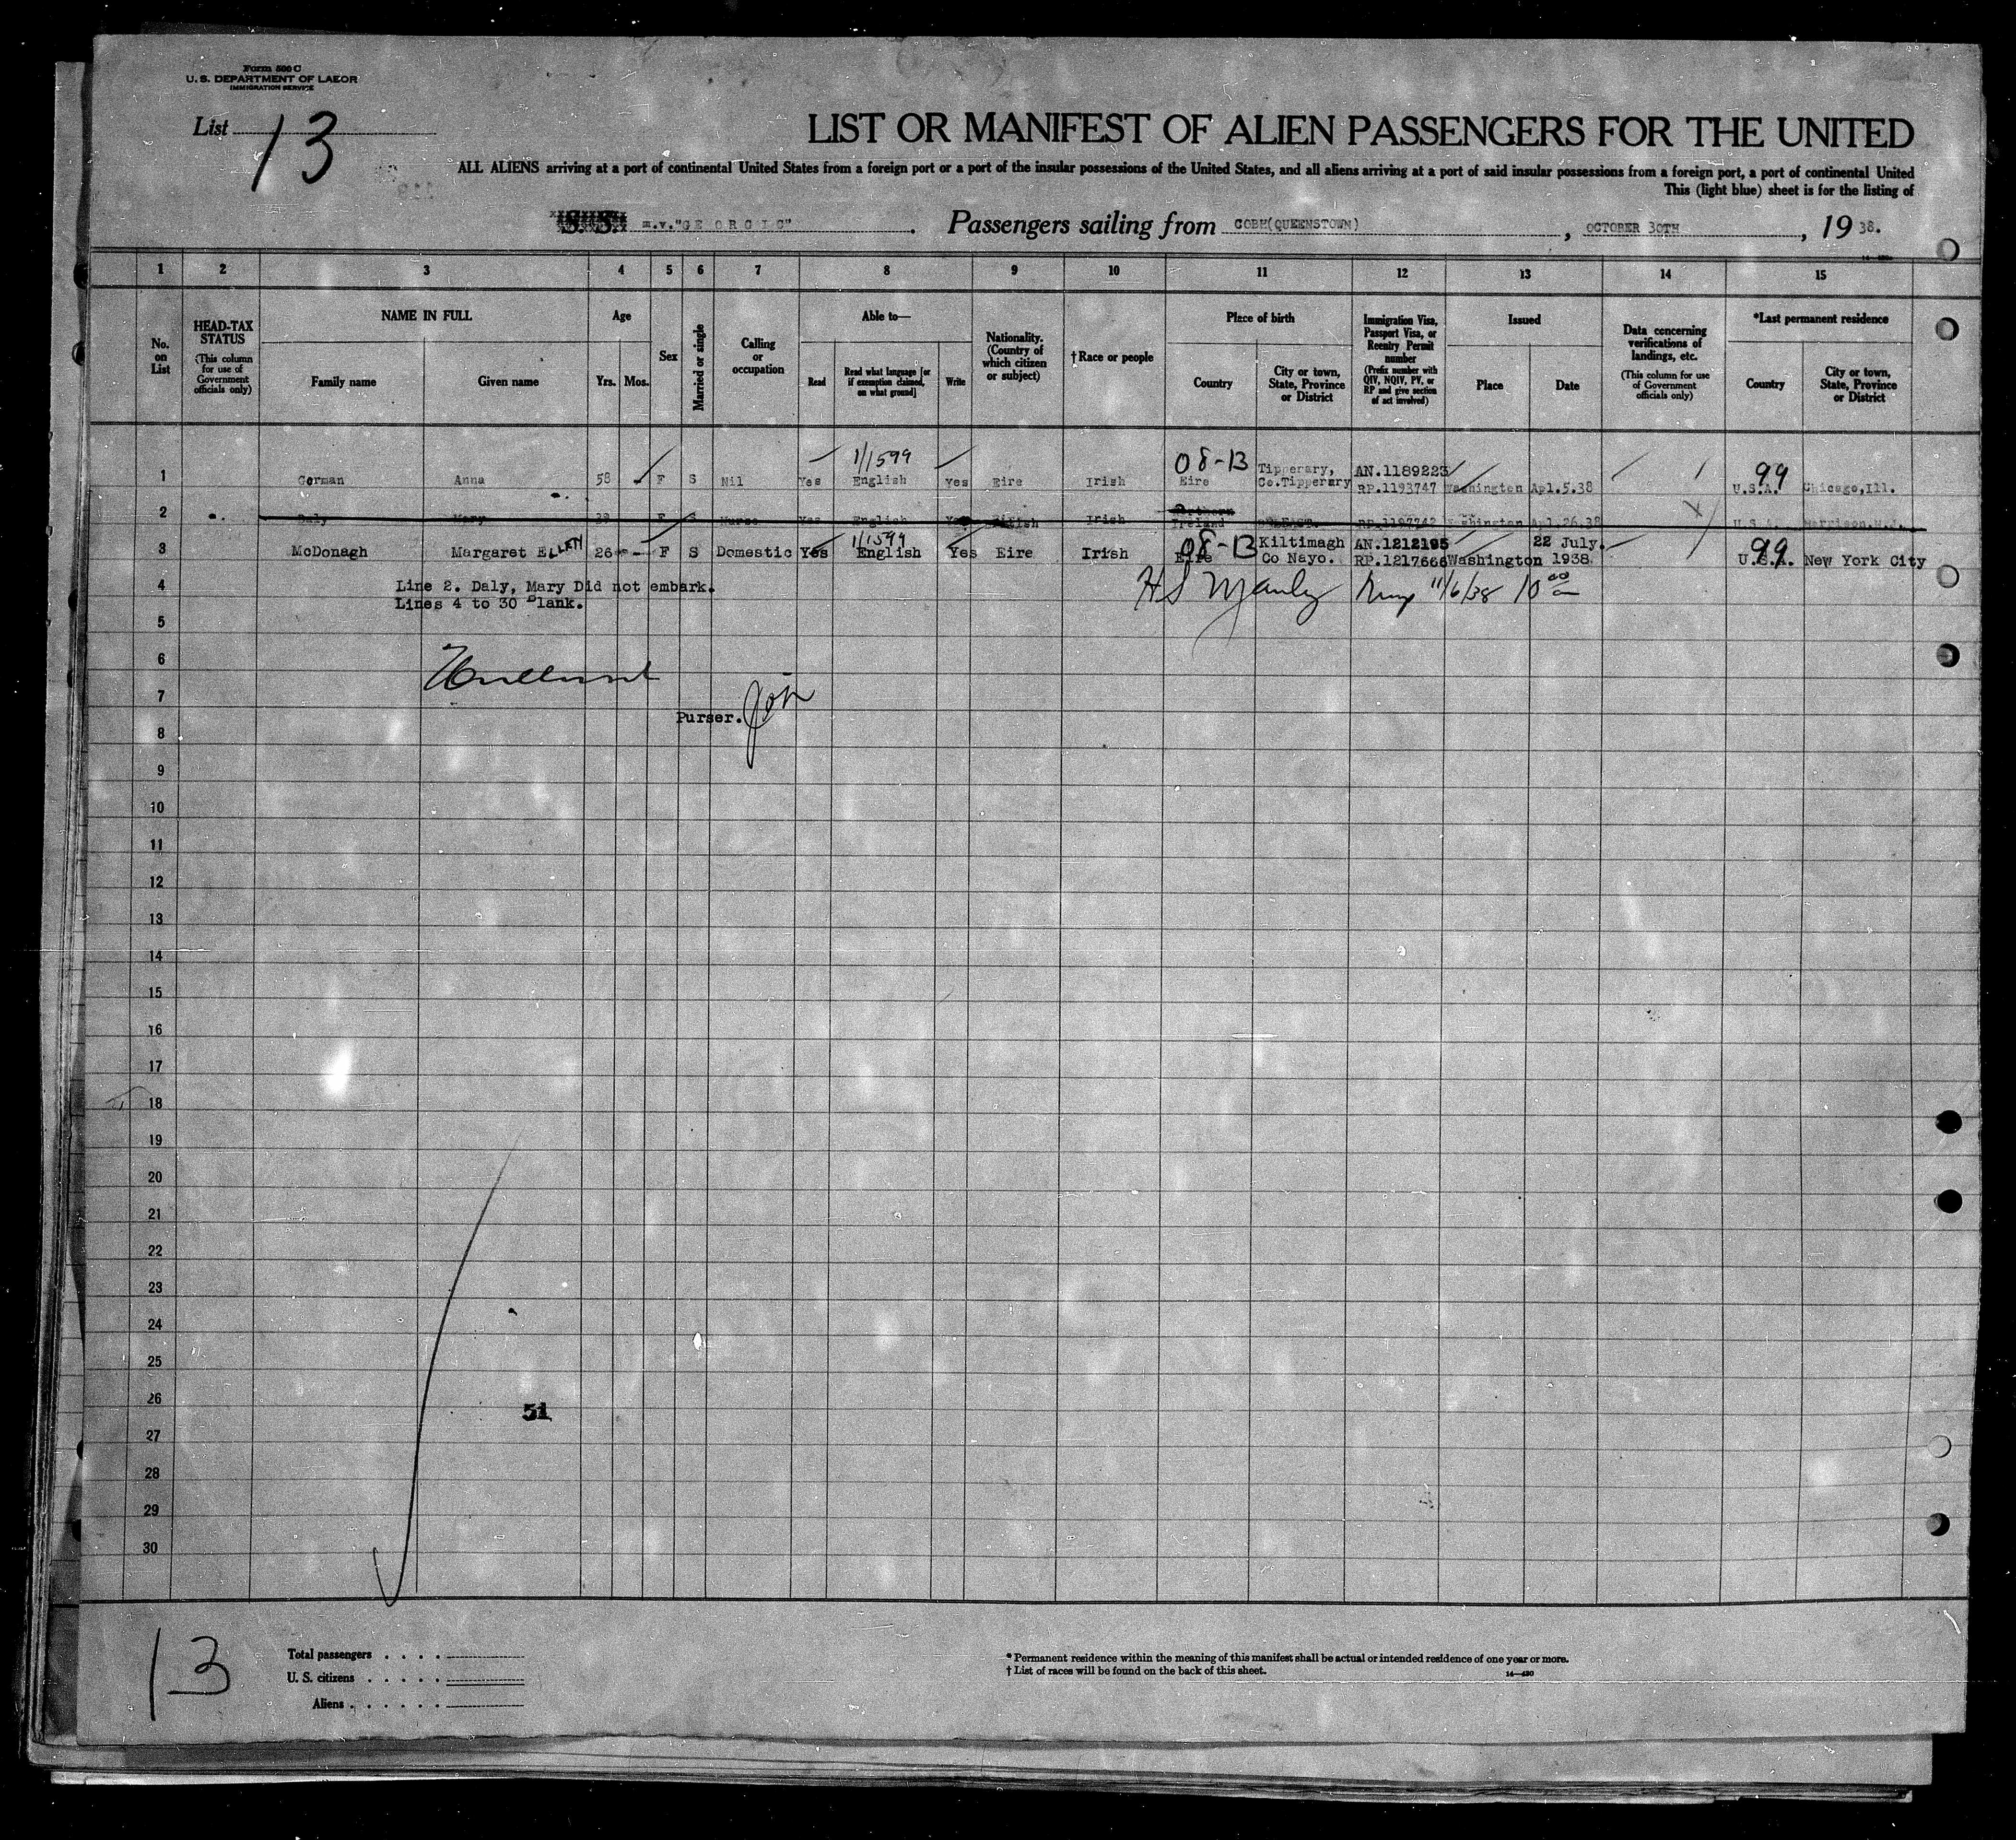 Form 500 C
U. S. DEPARTMENT OF LABOR
IMMIGRATION SERVICE
List 13
LIST OR MANIFEST OF ALIEN PASSENGERS FOR THE UNITED
ALL ALIENS arriving at a port of continental United States from a foreign port or a port of the insular possessions of the United States, and all aliens arriving at a port of said insular possessions from a foreign port, a port of continental United
This (light blue) sheet is for the listing of
S. S. m.v."GEORGIC" . Passengers sailing from COBH(QUEENSTOWN) , OCTOBER 30TH , 19 38.
1 2 3 4 5 6 7 8 9 10 11 12 13 14 15
No. on List
HEAD-TAX STATUS (This column for use of Government officials only)
NAME IN FULL Family name Given name
Age Yrs. Mos.
Sex
Married or single
Calling or occupation
Able to— Read Read what language [or if exemption claimed, on what ground] Write
Nationality. (Country of which citizen or subject)
† Race or people
Place of birth Country City or town, State, Province or District
Immigration Visa, Passport Visa, or Reentry Permit number (Prefix number with QIV, NQIV, PV, or RP and give section of act involved)
Issued Place Date
Data concerning verifications of landings, etc. (This column for use of Government officials only)
*Last permanent residence Country City or town, State, Province or District
1/1599 08-13 99
1 Gorman Anna 58 F S Nil Yes English Yes Eire Irish Eire Tipperary, Co.Tipperary AN.1189223 RP.1193747 Washington Apl.5.38 U.S.A. Chicago,Ill.
2 Daly Mary F S Nurse Yes English Yes British Irish Northern Ireland RP.1197742 Washington Apl.26.38 U.S.A. Harrison.N.J.
1/1599 08-13 99
3 McDonagh Margaret ELLEN 26 - F S Domestic Yes English Yes Eire Irish Eire Kiltimagh Co Nayo. AN.1212195 RP.1217666 Washington 22 July. 1938. U.S.A. New York City
4 Line 2. Daly, Mary Did not embark.
Lines 4 to 30 Blank.
H S Manley 11/6/38 10 00
5
6
7
Purser.
8
9
10
11
12
13
14
15
16
17
18
19
20
21
22
23
24
25
26
51
27
28
29
30
13
Total passengers . . . .
U. S. citizens . . . . .
Aliens . . . . . .
* Permanent residence within the meaning of this manifest shall be actual or intended residence of one year or more.
† List of races will be found on the back of this sheet. 14—430